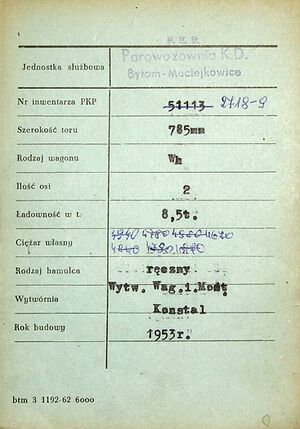 P. K. P.
Parowozownia K.D.
Jednostka służbowa
Bytom-Maciejkowice
Nr inwentarza PKP 51113 2718-9
Szerokość toru 785mm
Rodzaj wagonu Wh
Ilość osi 2
Ładowność w t. 8,5t.
4940 4780 4580 4620
Ciężar własny
Rodzaj hamulca ręczny
Wytw. Wag.i.Most
Wytwórnia
Konstal
Rok budowy 1953r.
btm 3 1192-62 6000